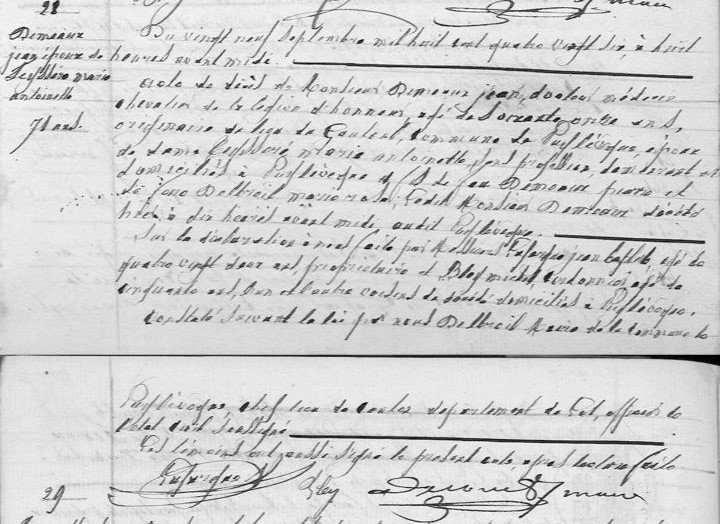 28
Demeaux
jean époux de
Teyssère marie
antoinette
71 ans.
Du vingt neuf Septembre mil huit cent quatre vingt six, à huit
heures avant midi.
acte de décès de Monsieur Demeaux jean, docteur médecin
chevalier de la légion d'honneur, agé de Soixante onze ans,
originaire du lieu de commune de Puylévêque, époux
de dame Teysseré marie antoinette, sans profession, demeurant et
domiciliés à Puylévêque, fils de feu Demeaux pierre et
de feue Delbreil marie rose; Ledit Monsieur Demeaux décédé
hier à dix heures avant midi audit Puylévêque.
Sur la déclaration à nous faite par Messieurs Lafargue jean agé de
quatre vingt deux ans, propriétaire et Bley michel, cordonnier agé de
cinquante ans, l'un et l'autre voisins du décédé domiciliés à Puylévêque.
Constaté Suivant la loi par nous Delbreil Maire de la Commune de
Puylévêque chef lieu de canton département du Lot, officier de
l'état civil Soussigné
Les témoins ont aussi signé le présent acte, après lecture faite
Lafargue Bley maire
29